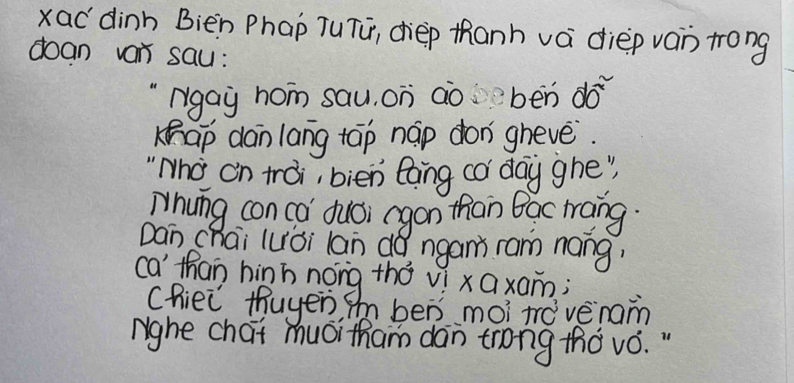 xác định Biện Pháp Tu Từ, điệp thanh và điệp vần trong
đoạn văn sau:
"Ngày hôm sau, ồn ào bến đỗ
Khắp dân làng tấp nập đón ghe về.
"Nhờ ơn trời, biển lặng cá đầy ghe",
Những con cá tươi ngon thân bạc trắng.
Dân chài lưới làn da ngăm rám nắng,
Cả thân hình nồng thở vị xa xăm;
Chiếc thuyền im bến mỏi trở về nằm
Nghe chất muối thấm dần trong thớ vỏ."